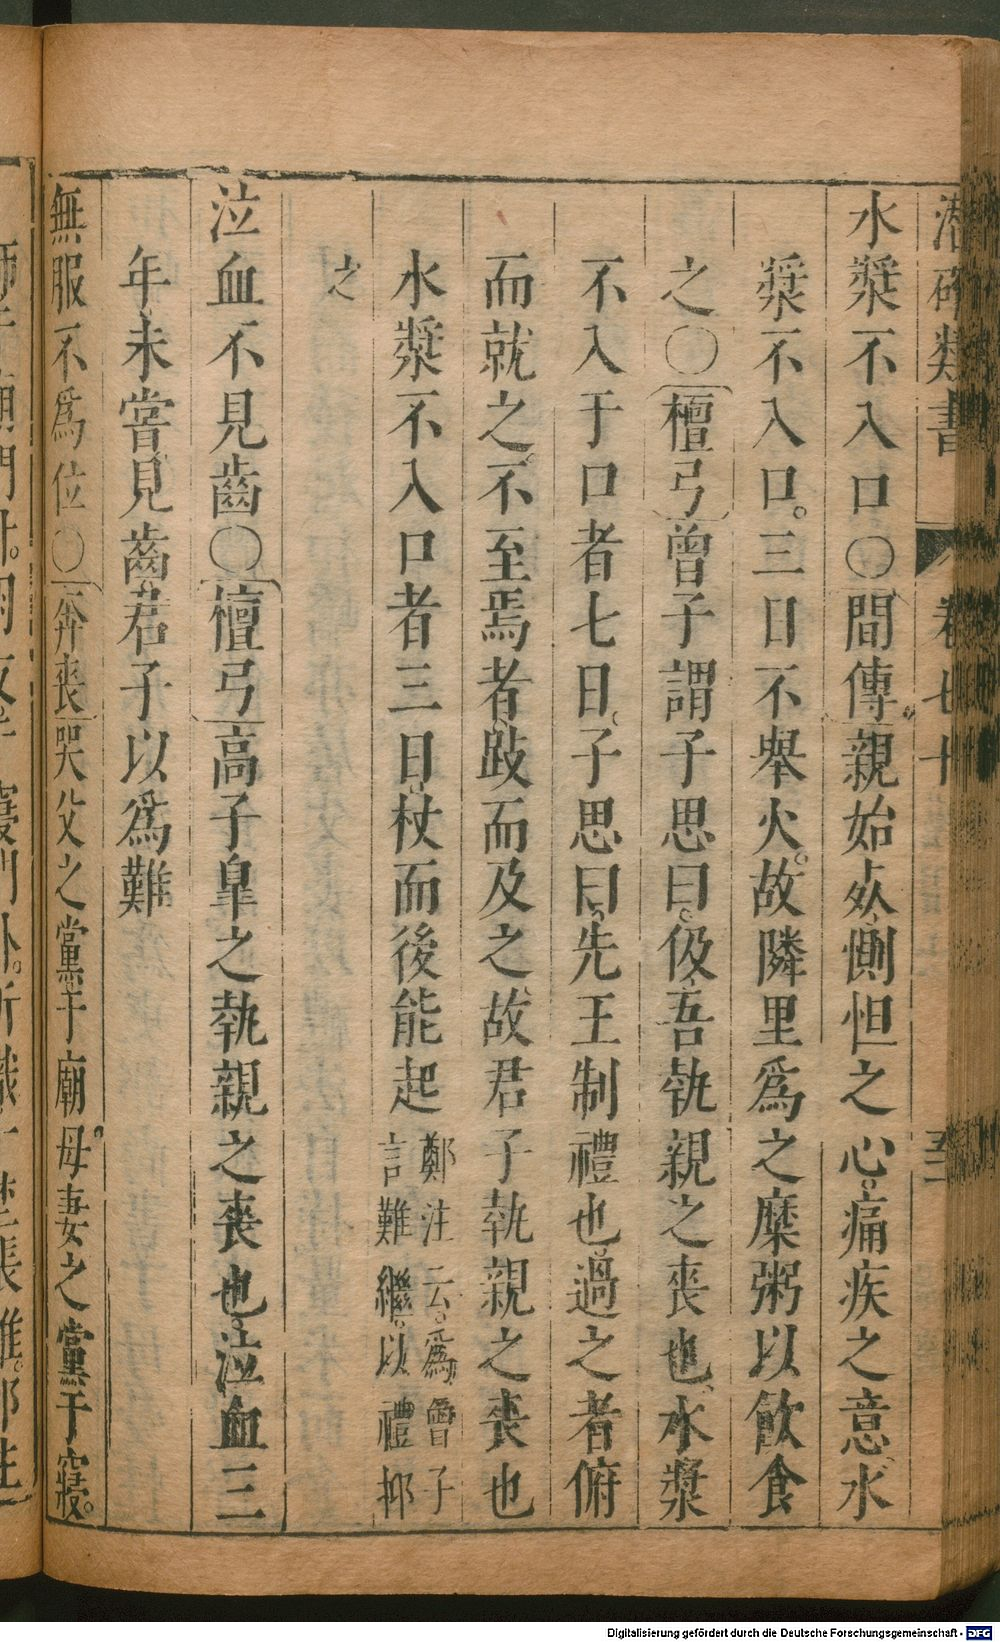 潛確類書 卷七十 至二
水漿不入口〇間傳親始死惻怛之心痛疾之意水
漿不入口三日不舉火故隣里爲之糜粥以飲食
之〇檀弓曾子謂子思曰伋吾執親之喪也水漿
不入于口者七日子思曰先王制禮也過之者俯
而就之不至焉者跂而及之故君子執親之喪也
水漿不入口者三日杖而後能起鄭注云爲曾子
言難繼以禮抑
之
泣血不見齒〇檀弓高子皐之執親之喪也泣血三
年未嘗見齒君子以爲難
無服不爲位〇奔喪哭父之黨于廟母妻之黨于寢
Digitalisierung gefördert durch die Deutsche Forschungsgemeinschaft - DFG